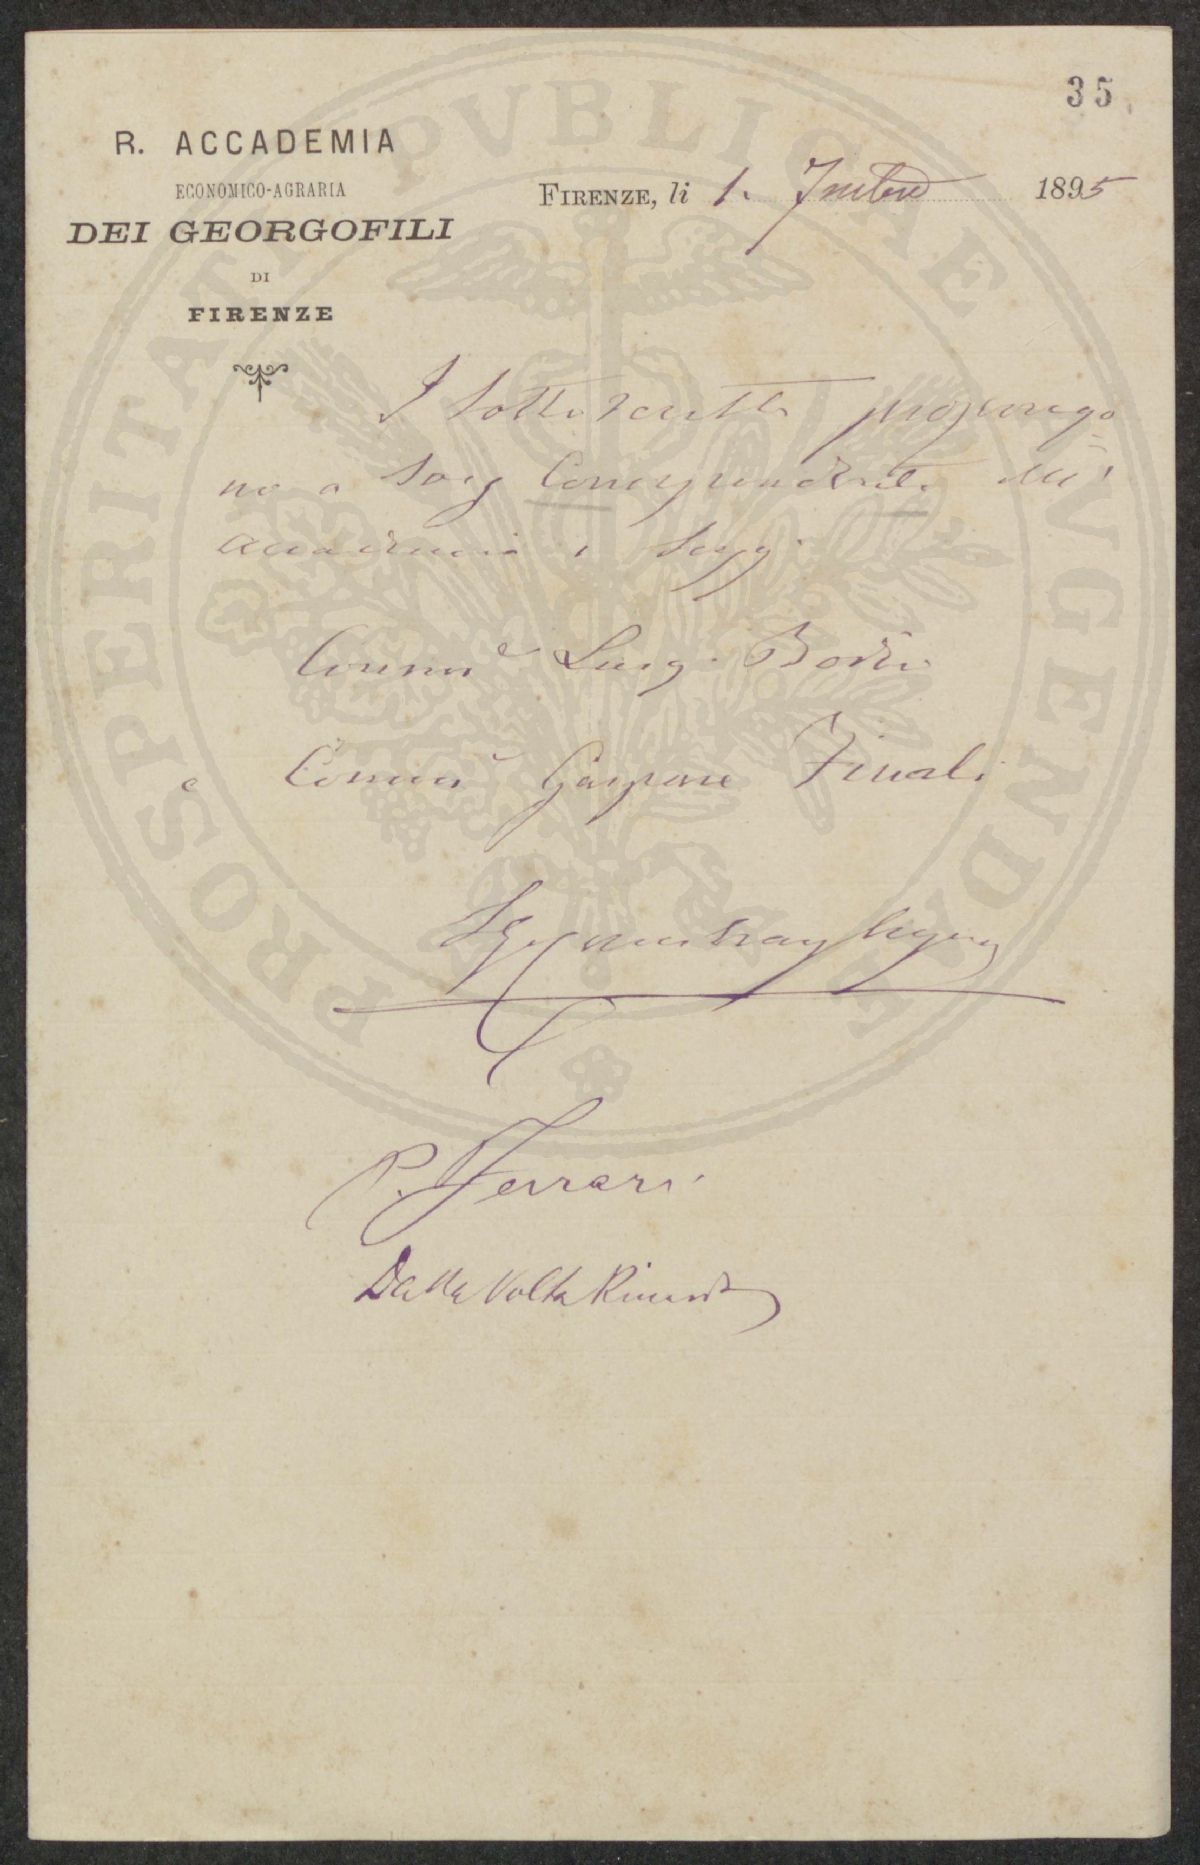 35
R. ACCADEMIA
ECONOMICO-AGRARIA
DEI GEORGOFILI
DI
FIRENZE
FIRENZE, li 1. 1895
I Sottoscritti propongo=
no a Socj Corrispondenti dell'
Accademia i Sigg.
Comm.e Luigi Bodio
e Comm.e Gaspare Finali
P. Ferrari
Dalla Volta Riccardo
PROSPERITATI PVBLICAE AVGENDAE